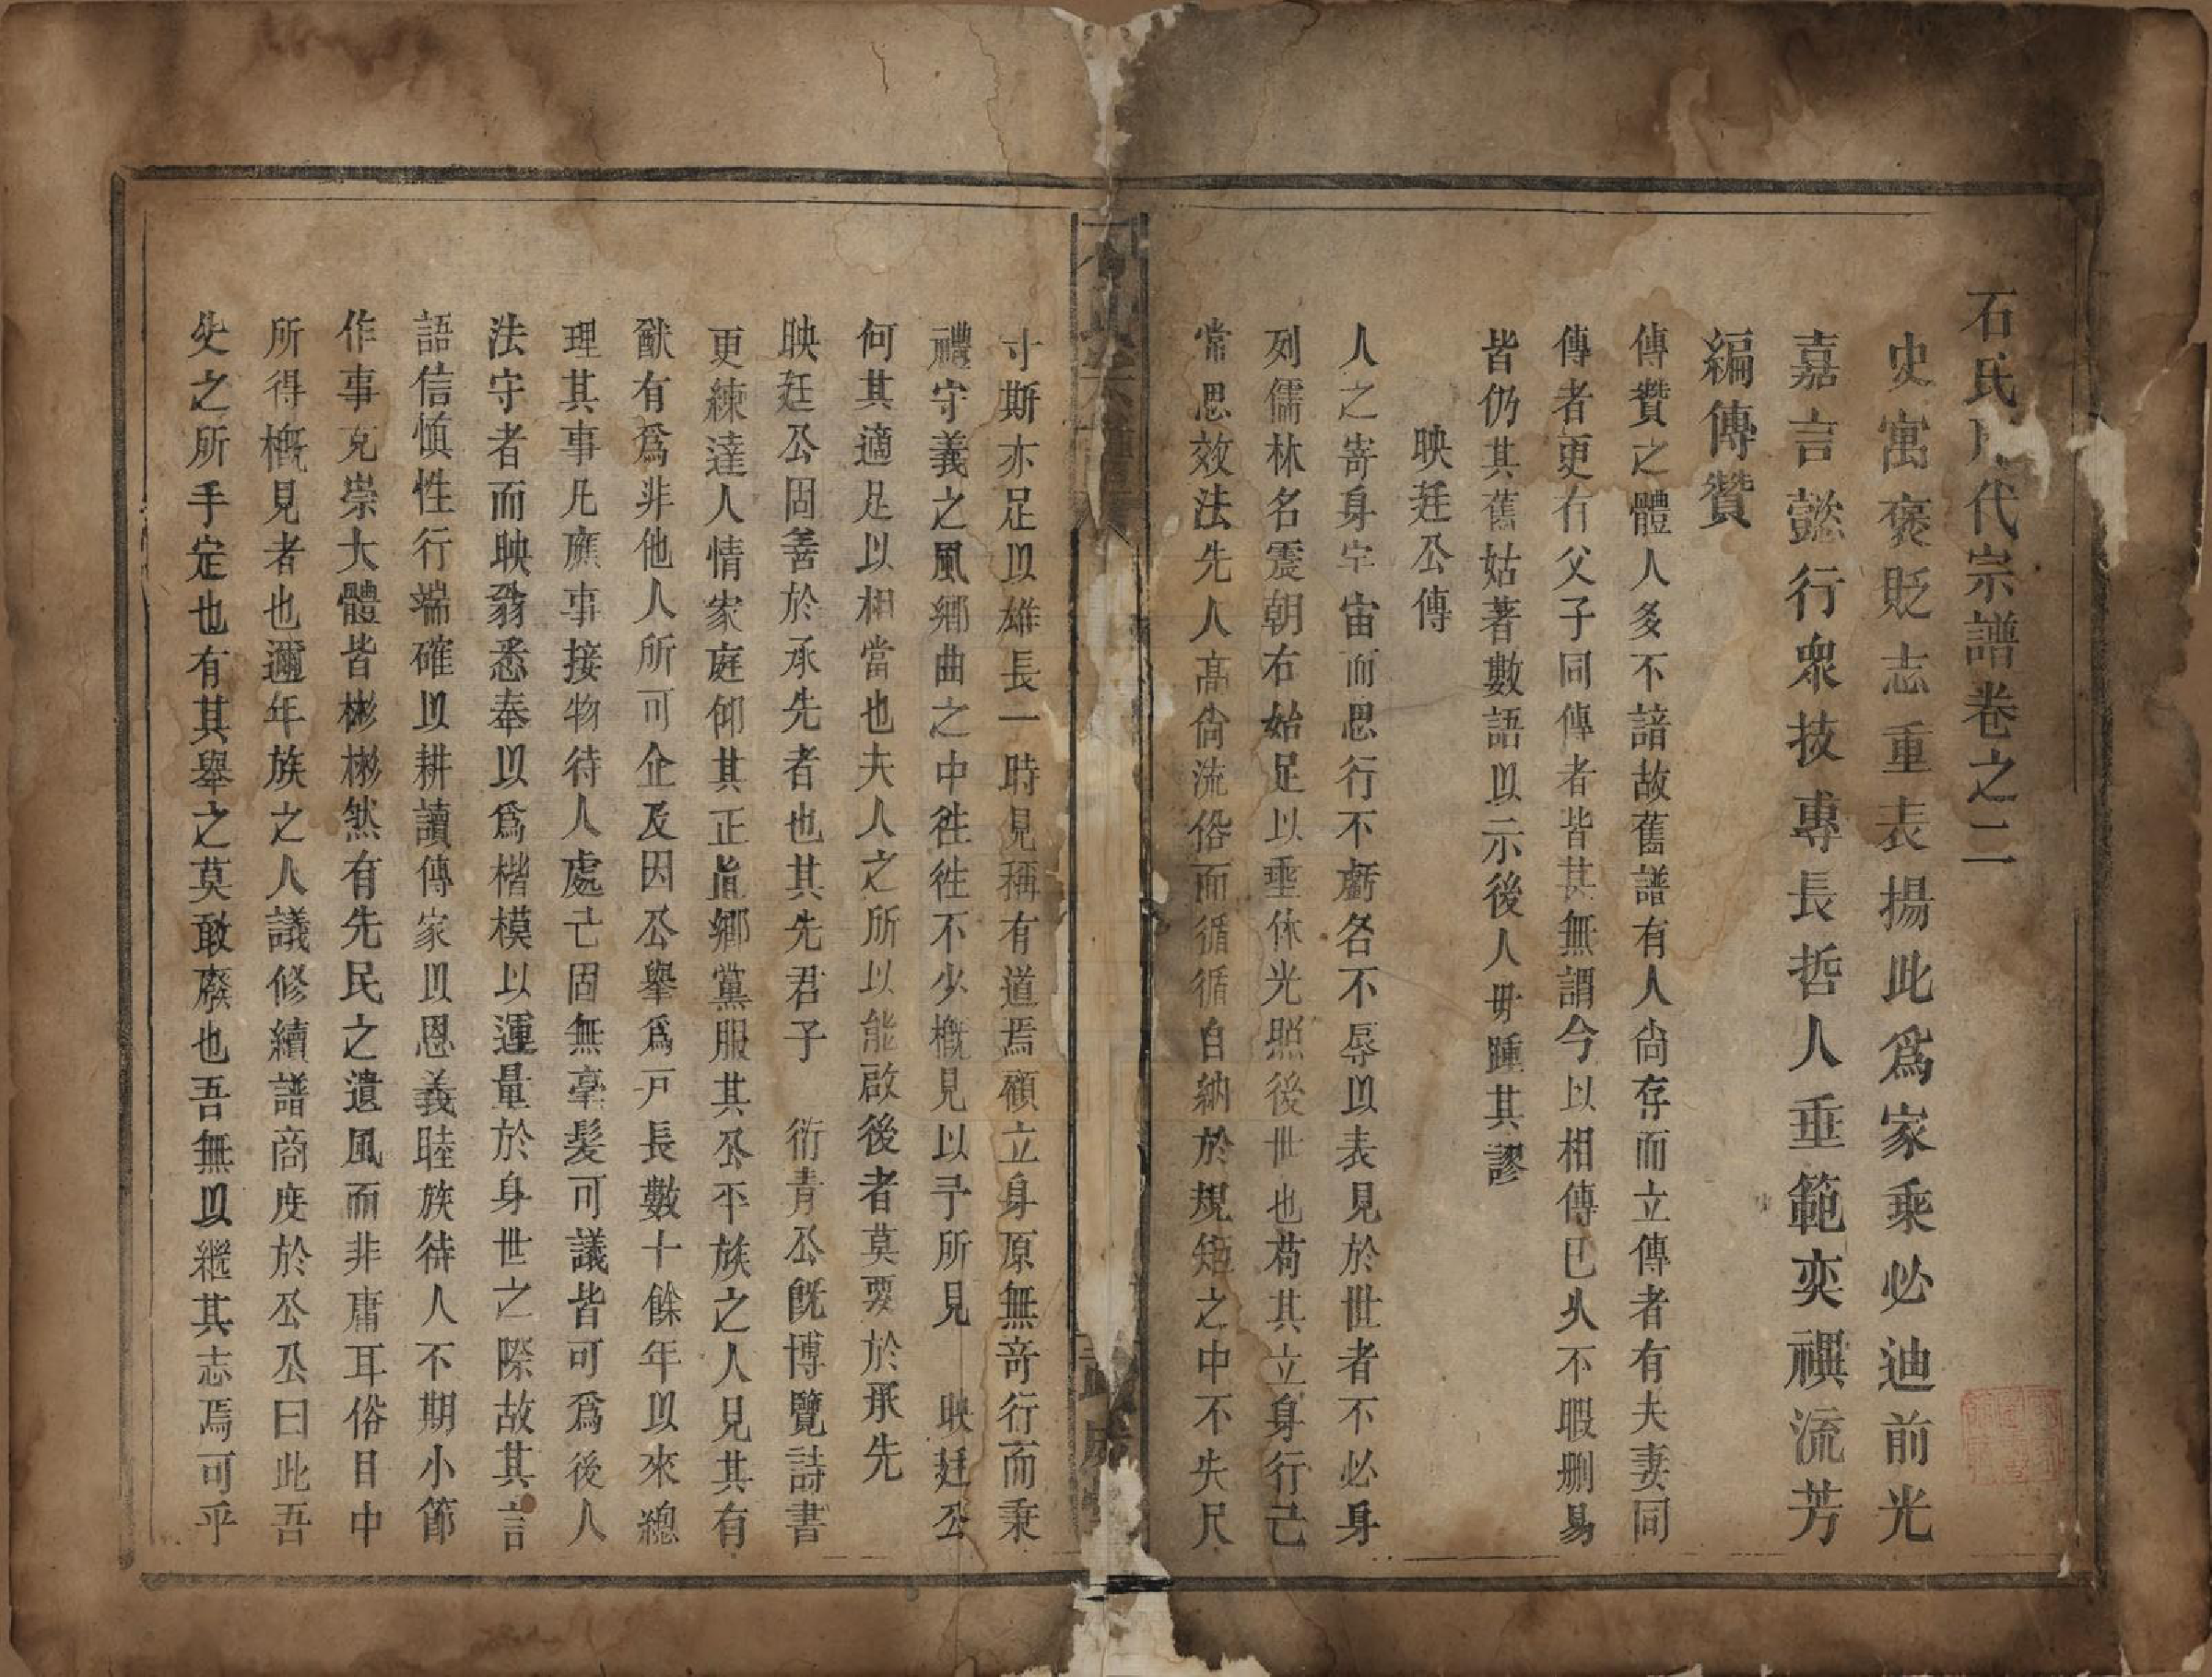 石氏代宗譜卷之二
史寓褒貶志重表揚此爲家乘必迪前光
嘉言懿行衆技專長哲人垂範奕禩流芳
編傳贊
傳贊之體人多不諳故舊譜有人尙存而立傳者有夫妻同
傳者更有父子同傳者皆甚無謂今以相傳已乆不暇删易
皆仍其舊姑著數語以示後人毋踵其謬
映廷公傳
人之寄身宇宙而思行不虧名不辱以表見於世者不必身
列儒林名震朝右始足以垂休光照後世也苟其立身行己
常思效法先人高尙流俗而循循自納於規矩之中不失尺
寸斯亦足以雄長一時見稱有道焉顧立身原無奇行而秉
禮守義之風鄉曲之中徃徃不少槪見以予所見 映廷公
何其適足以相當也夫人之所以能啟後者莫要於承先
映廷公固善於承先者也其先君子 衍青公旣博覽詩書
更練達人情家庭仰其正直鄉黨服其公平族之人見其有
猷有爲非他人所可企及因公舉爲戸長數十餘年以來總
理其事凡應事接物待人處己固無毫髮可議皆可爲後人
法守者而映翁悉奉以爲楷模以運量於身世之際故其言
語信愼性行端確以耕讀傳家以恩義睦族待人不期小節
作事克崇大體皆彬彬然有先民之遺風而非庸耳俗目中
所得槪見者也邇年族之人議修續譜商度於公公曰此吾
父之所手定也有其舉之莫敢廢也吾無以繼其志焉可乎